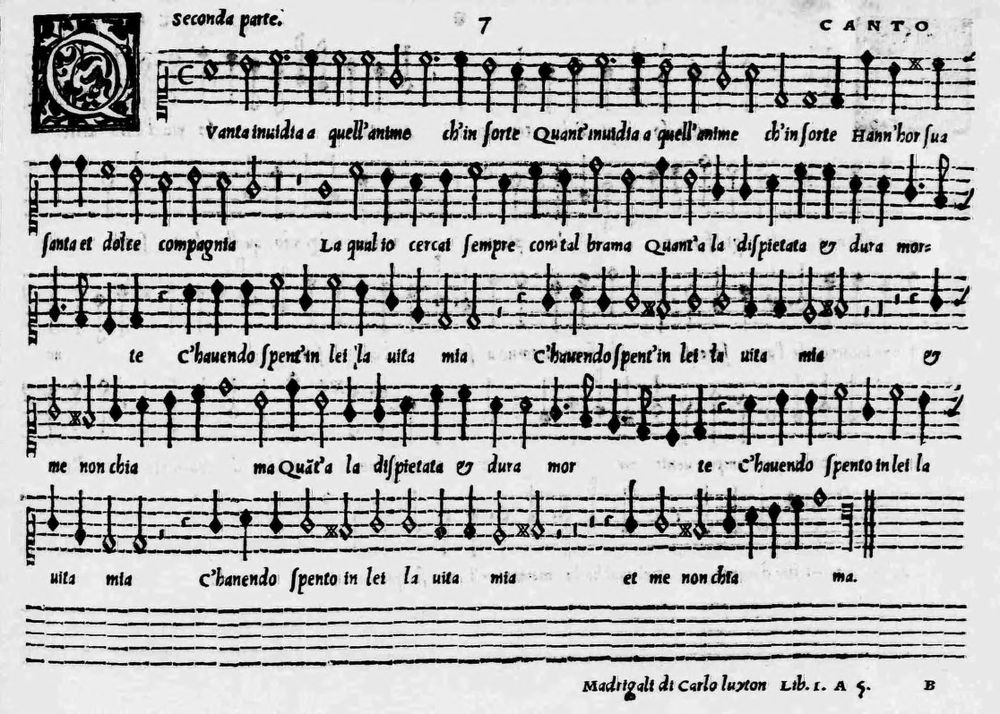 Seconda parte. 7 CANTO
QVanta inuidia a quell'anime ch'in sorte Quant'inuidia a quell'anime ch'in sorte Hann'hor sua
santa et dolce compagnia La qual io cercai sempre con tal brama Quant'a la dispietata & dura mor=
te C'hauendo spent'in lei la uita mia C'hauendo spent'in lei la uita mia &
me non chia ma Quãt'a la dispietata & dura mor te C'hauendo spento in lei la
uita mia C'hauendo spento in lei la uita mia et me non chia ma.
Madrigali di Carlo luyton Lib. 1. A 5. B